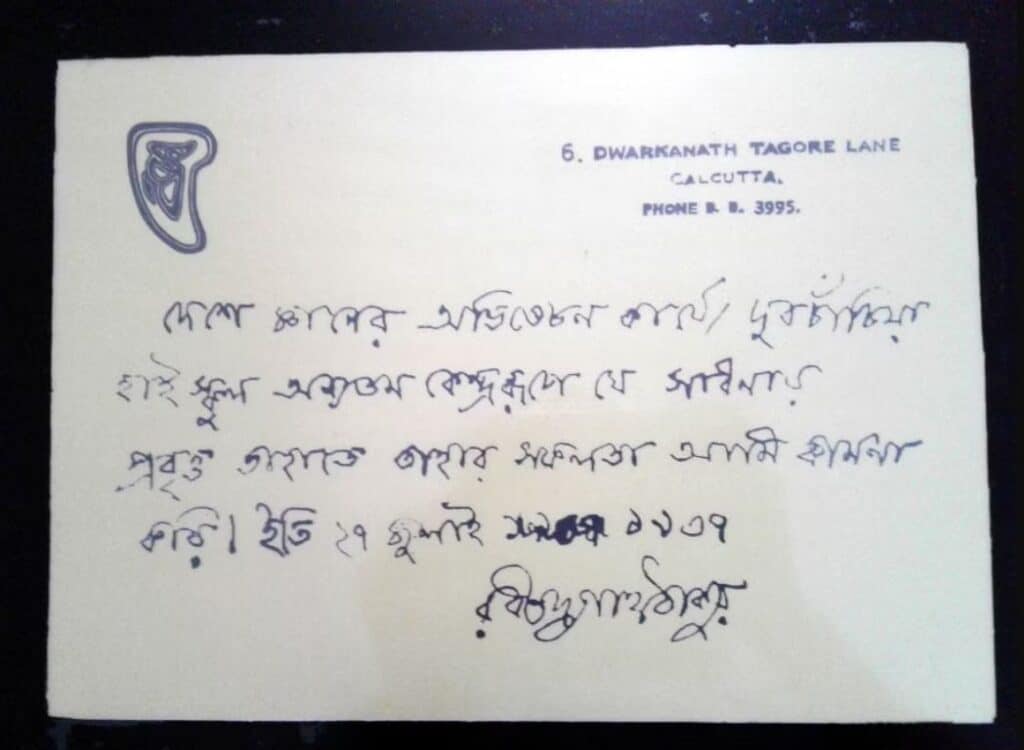 6. DWARKANATH TAGORE LANE
CALCUTTA.
PHONE B. B. 3995.
দেশে জ্ঞানের অভিসেচন কার্যে দুবচাঁচিয়া
হাই স্কুল অন্যতম কেন্দ্ররূপে যে সাধনায়
প্রবৃত্ত তাহাতে তাহার সফলতা আমি কামনা
করি। ইতি ২৭ জুলাই ১৯৩৭
রবীন্দ্রনাথ ঠাকুর